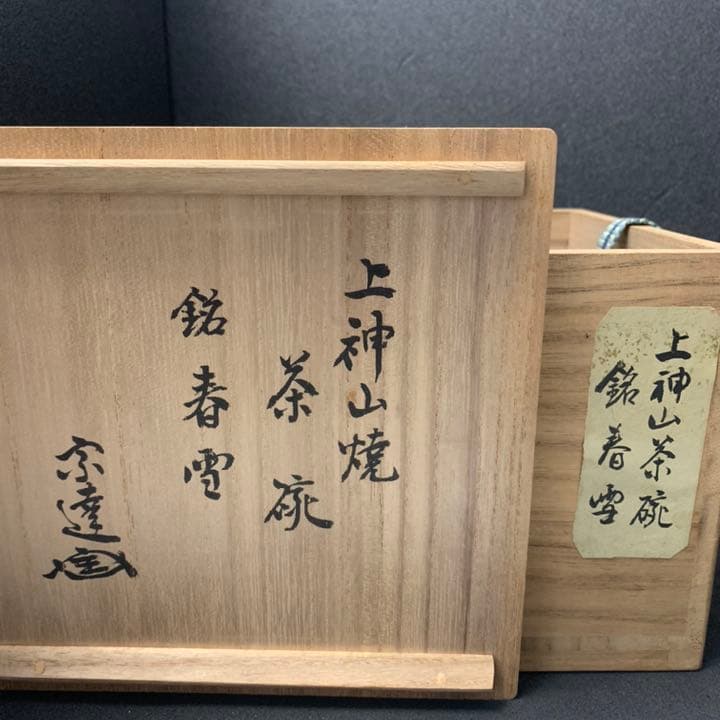 上神山燒
茶碗
銘春雪
宗達
上神山茶碗
銘春雪